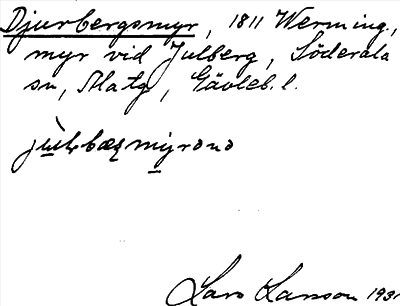 Djurbergsmyr, 1811 Werming.,
myr vid Julberg, Söderala
sn, Matg, Gävleb. l.
Lars Larsson 193